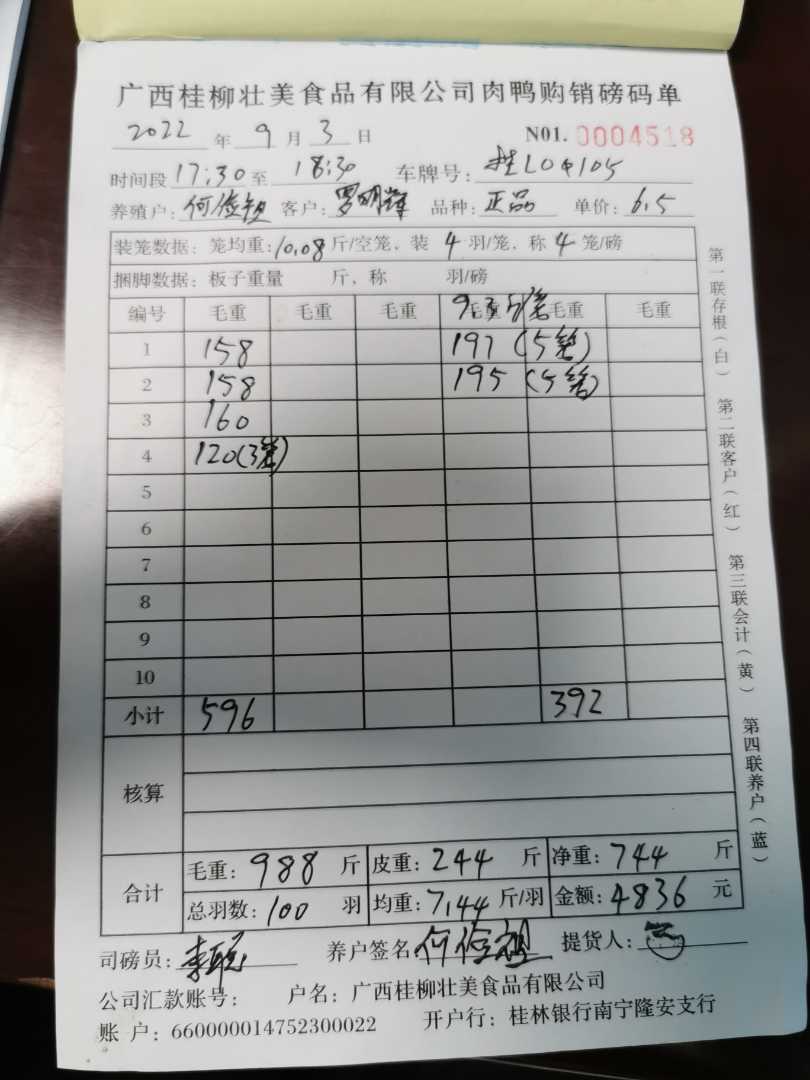 广西桂柳壮美食品有限公司肉鸭购销磅码单
2022 年 9 月 3 日 N01. 0004518
时间段 17:30 至 18:30 车牌号: 桂L04105
养殖户: 何俭祖 客户: 罗明辉 品种: 正品 单价: 6.5
装笼数据: 笼均重: 10.08 斤/空笼, 装 4 羽/笼, 称 4 笼/磅
捆脚数据: 板子重量 斤, 称 羽/磅
编号 毛重 毛重 毛重 毛重 毛重 毛重
1 158 197 (5笼)
2 158 195 (5笼)
3 160
4 120(3笼)
5
6
7
8
9
10
小计 596 392
核算
合计
毛重: 988 斤 皮重: 244 斤 净重: 744 斤
总羽数: 100 羽 均重: 7.44 斤/羽 金额: 4836 元
司磅员: 李聪 养户签名 何俭祖 提货人:
公司汇款账号: 户名: 广西桂柳壮美食品有限公司
账 户: 660000014752300022 开户行: 桂林银行南宁隆安支行
第一联存根(白)
第二联客户(红)
第三联会计(黄)
第四联养户(蓝)